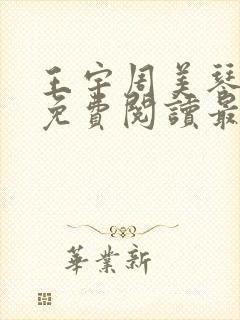 王宇周美琴
免費閱讀最
華業新